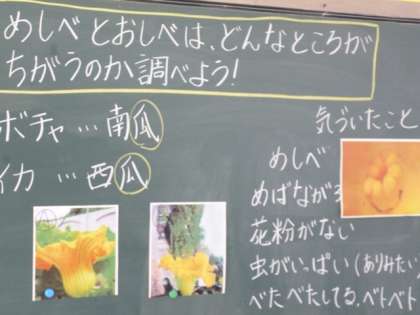 めしべとおしべは、どんなところが
ちがうのか調べよう!
ボチャ…南瓜
イカ…西瓜
気づいたこと
めしべ
めばながる
花粉がない
虫がいっぱい(ありみたい
べたべたしてる、ベトベト